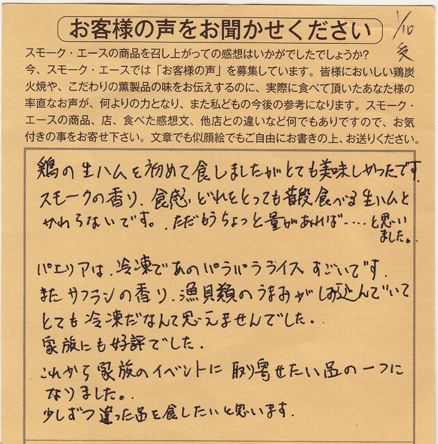 お客様の声をお聞かせください
1/10
スモーク・エースの商品を召し上がっての感想はいかがでしたでしょうか?
今、スモーク・エースでは「お客様の声」を募集しています。皆様においしい鶏炭
火焼や、こだわりの薫製品の味をお伝えするのに、実際に食べて頂いたあなた様の
率直なお声が、何よりの力となり、また私どもの今後の参考になります。スモーク・
エースの商品、店、食べた感想文、他店との違いなど何でもありですので、お気
付きの事をお寄せ下さい。文章でも似顔絵でもご自由にお書きの上、お送りください。
鶏の生ハムを初めて食しましたがとても美味しかったです
スモークの香り、食感、どれをとっても普段食べる生ハムと
かわらないです。ただもうちょっと量があれば・・・・と思い
ました。
パエリアは、冷凍であのパラパラライス すごいです。
また サフランの香り、漁貝類のうまみがしみ込んでいて
とても冷凍だなんて思えませんでした。
家族にも好評でした。
これから家族のイベントに取り寄せたい品の一つに
なりました。
少しずつ違った品を食したいと思います。